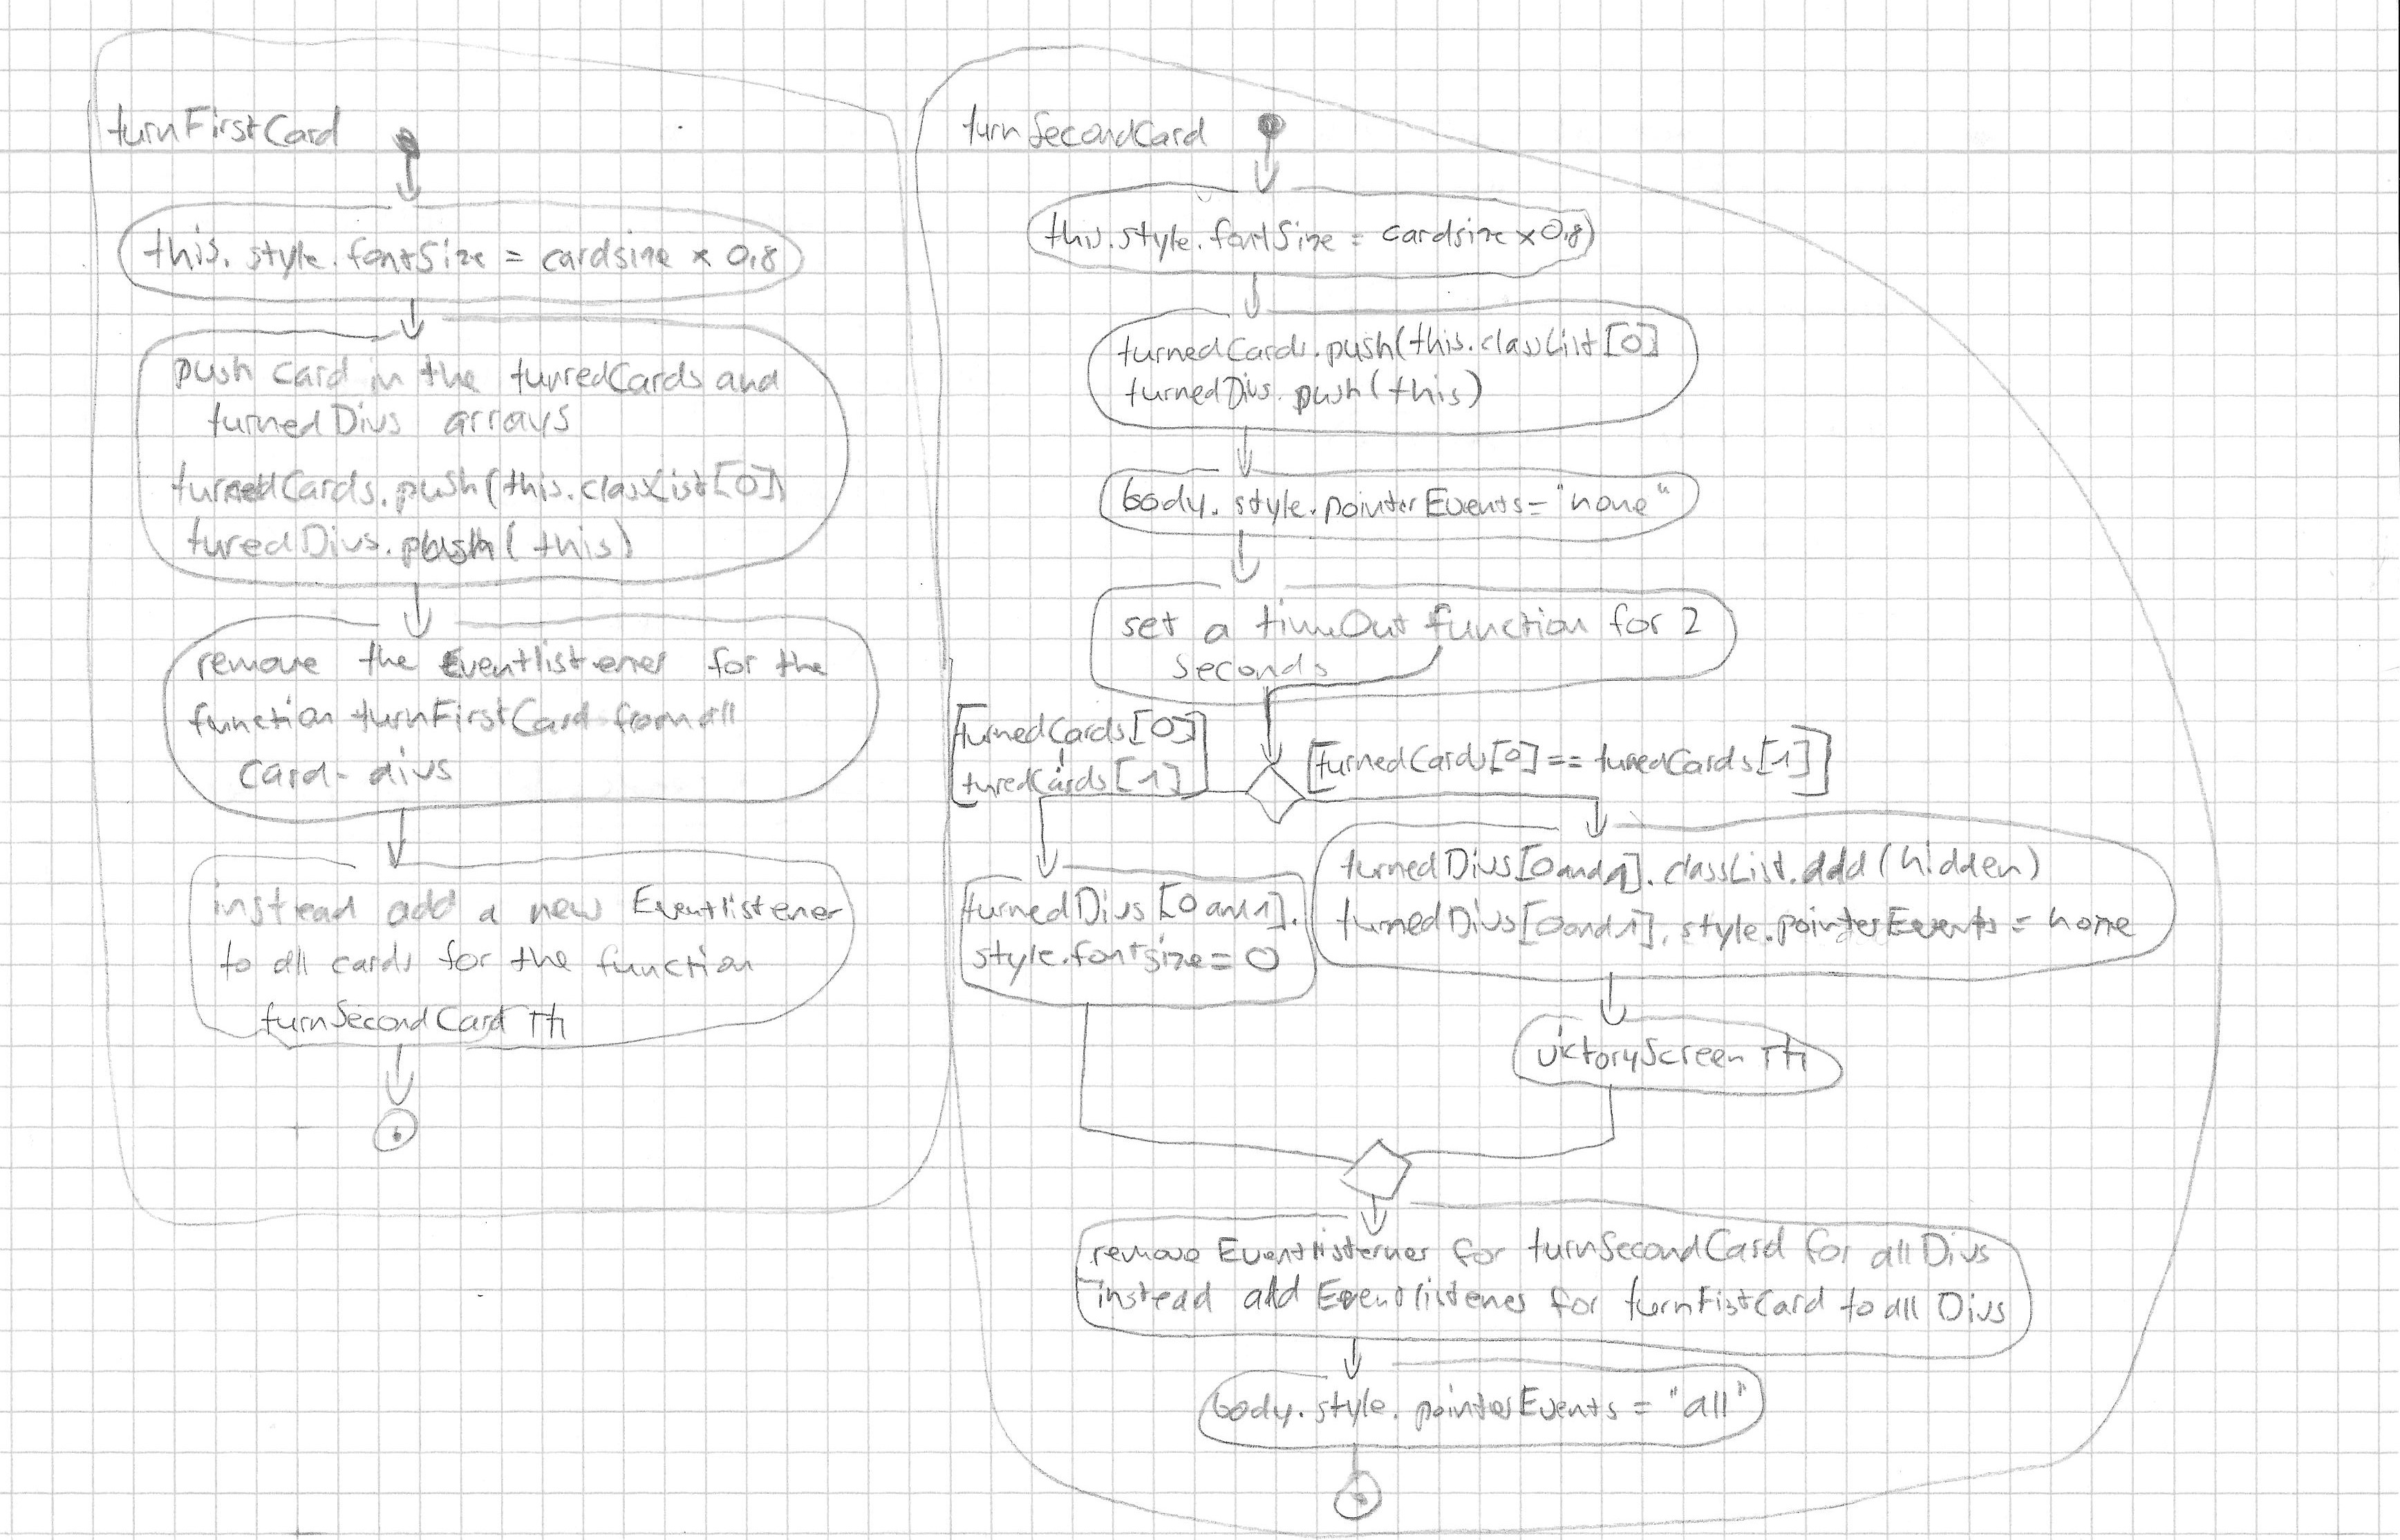 turnFirstCard
this.style.fontSize = cardsize * 0,8
push card in the turnedCards and
turnedDivs arrays
turnedCards.push(this.classList[0]
turedDivs.push(this)
remove the Eventlistener for the
function turnFirstCard from all
card-divs
instead add a new Eventlistener
to all cards for the function
turnSecondCard
turnSecondCard
this.style.fontSize = cardsize * 0,8
turnedCards.push(this.classList[0]
turnedDivs.push(this)
body.style.pointerEvents="none"
set a timeOut function for 2
seconds
[turnedCards[0]
turedCards[1]]
[turnedCards[0] == turnedCards[1]]
turnedDivs[0 and 1].
style.fontsize = 0
turnedDivs[0 and 1].classList.add(hidden)
turnedDivs[0 and 1].style.pointerEvents = none
victoryScreen
remove Eventlisterner for turnSecondCard for all Divs
instead add Eventlistener for turnFistCard to all Divs
body.style.pointerEvents = "all"